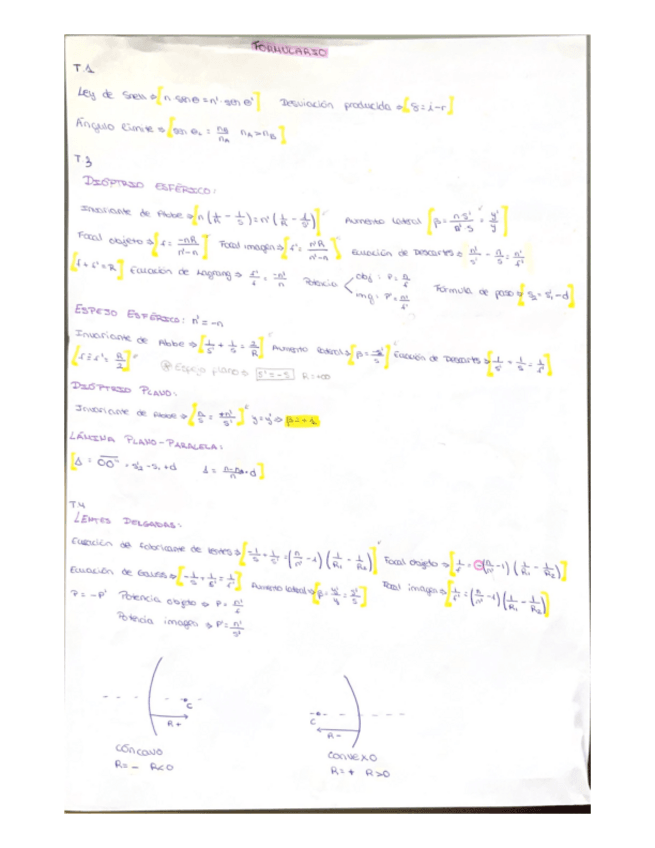 FORMULARIO
T.1
Ley de Snell ⇒ [n senθ = n' · sen θ'] Desviación producida ⇒ [δ = i - r]
Ángulo límite ⇒ [sen θL = nB/nA nA > nB]
T.3
DIÓPTRIO ESFÉRICO:
Invariante de Abbe ⇒ [n (1/R - 1/S) = n' (1/R - 1/S')] Aumento lateral [β = n S'/n' S = y'/y]
Focal objeto ⇒ [f = -nR/n'-n] Focal imagen ⇒ [f' = n'R/n'-n] Ecuación de Descartes ⇒ n'/s' - n/s = n'/f'
[f + f' = R] Ecuación de Lagrang ⇒ f'/f = -n'/n Potencia obj: P = n/f Fórmula de paso ⇒ [s2 = s'1 - d]
img: P' = n'/f'
ESPEJO ESFÉRICO: n' = -n
Invariante de Abbe ⇒ [1/s' + 1/s = 2/R] Aumento lateral ⇒ [β = -s'/s] Ecuación de Descartes ⇒ [1/s' + 1/s = 1/f']
[f = f' = R/2] Espejo plano ⇒ s' = -s R = ∞
DIÓPTRIO PLANO:
Invariante de Abbe ⇒ [n/s = n'/s'] y = y' ⇒ β = +1
LÁMINA PLANO-PARALELA:
[Δ = OO'' = s'2 - s1 + d
T.4
LENTES DELGADAS:
Ecuación del fabricante de lentes ⇒ [-1/s + 1/s' = (n/n' - 1) (1/R1 - 1/R2)] Focal objeto ⇒ [1/f = -(n/n' - 1) (1/R1 - 1/R2)]
Ecuación de Gauss ⇒ [-1/s + 1/s' = 1/f'] Aumento lateral ⇒ [β = y'/y = s'/s] Focal imagen ⇒ [1/f' = (n/n' - 1) (1/R1 - 1/R2)]
P = -P' Potencia objeto ⇒ P = n'/f
Potencia imagen ⇒ P' =
C
R+
C
R-
CÓNCAVO
R = - R<0
CONVEXO
R = + R>0